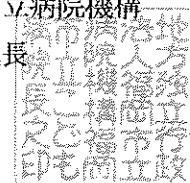 立病院機構
長
地方独立行政
法人福岡市立
病院機構福岡
市立こども
病院長之印